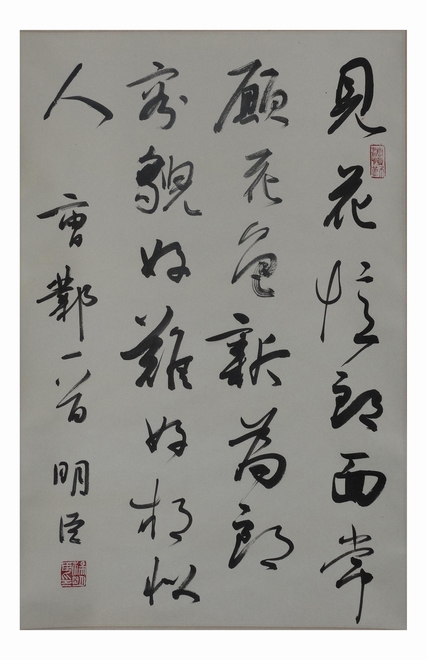 見花憶郎面常
願花色新為郎
容貌好難好相似
人
曹鄴一首 明臣